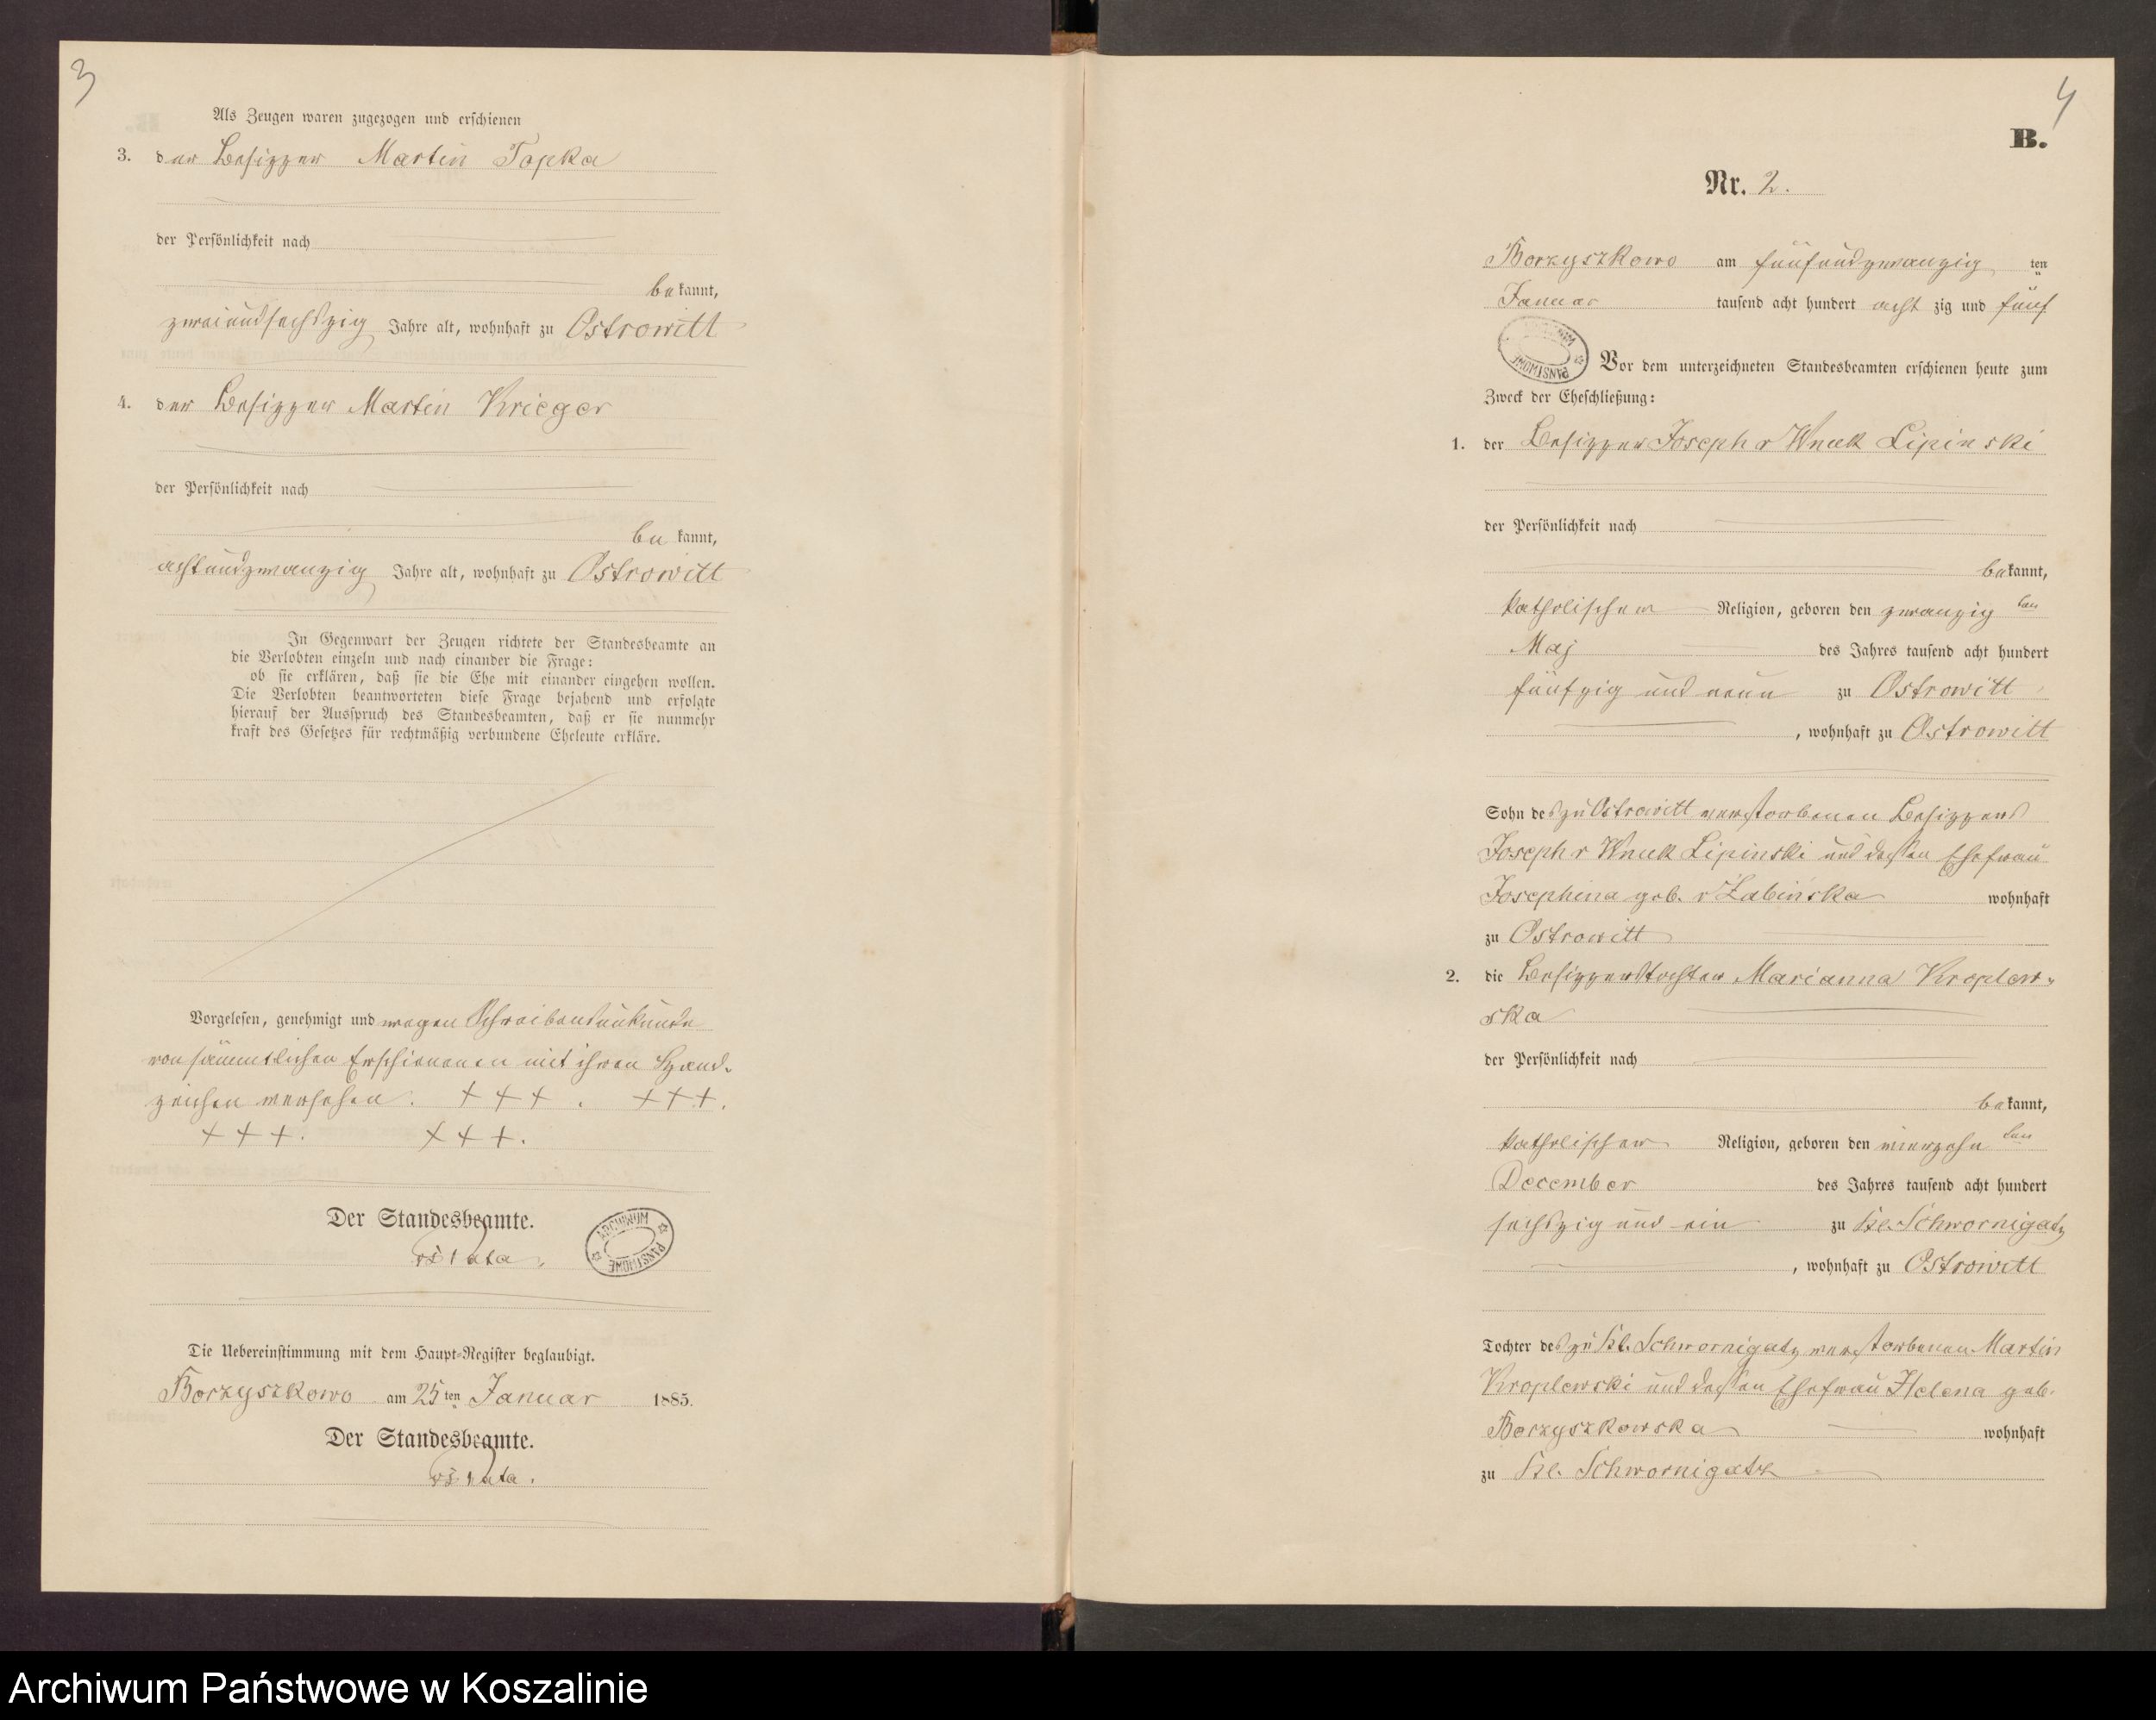 3
Als Zeugen waren zugezogen und erschienen
3. der Besitzer Martin Topka
der Persönlichkeit nach
be kannt,
zweiundsechszig Jahre alt, wohnhaft zu Ostrowitt
4. der Besitzer Martin Krieger
der Persönlichkeit nach
be kannt,
achtundzwanzig Jahre alt, wohnhaft zu Ostrowitt
In Gegenwart der Zeugen richtete der Standesbeamte an
die Verlobten einzeln und nach einander die Frage:
ob sie erklären, daß sie die Ehe mit einander eingehen wollen.
Die Verlobten beantworteten diese Frage bejahend und erfolgte
hierauf der Ausspruch des Standesbeamten, daß er sie nunmehr
kraft des Gesetzes für rechtmäßig verbundene Eheleute erkläre.
Vorgelesen, genehmigt und wegen Schreibensunkunde
von sämmtlichen Erschienenen mit ihren Hand-
zeichen versehen. + + + . + + + .
+ + + . + + + .
Der Standesbeamte.
ARCHIWUM PAŃSTWOWE
Die Uebereinstimmung mit dem Haupt-Register beglaubigt.
Borzyszkowo am 25ten Januar 1885.
Der Standesbeamte.
4
B.
Nr. 2.
Borzyszkowo am fünfundzwanzig ten
Januar tausend acht hundert acht zig und fünf
ARCHIWUM PAŃSTWOWE
Vor dem unterzeichneten Standesbeamten erschienen heute zum
Zweck der Eheschließung:
1. der Besitzer Joseph v Wnuk Lipinski
der Persönlichkeit nach
be kannt,
katholischer Religion, geboren den zwanzig ten
Maj des Jahres tausend acht hundert
fünfzig und neun zu Ostrowitt
, wohnhaft zu Ostrowitt
Sohn des zu Ostrowitt verstorbenen Besitzers
Joseph v Wnuk Lipinski und dessen Ehefrau
Josephina geb. v Żabińska wohnhaft
zu Ostrowitt
2. die Besitzerstochter Marianna Kroplew-
ska
der Persönlichkeit nach
be kannt,
katholischer Religion, geboren den vierzehn ten
December des Jahres tausend acht hundert
sechszig und ein zu Kl. Schwornigatz
, wohnhaft zu Ostrowitt
Tochter des zu Kl. Schwornigatz verstorbenen Martin
Kroplewski und dessen Ehefrau Helena geb.
Borzyszkowska wohnhaft
zu Kl. Schwornigatz
Archiwum Państwowe w Koszalinie